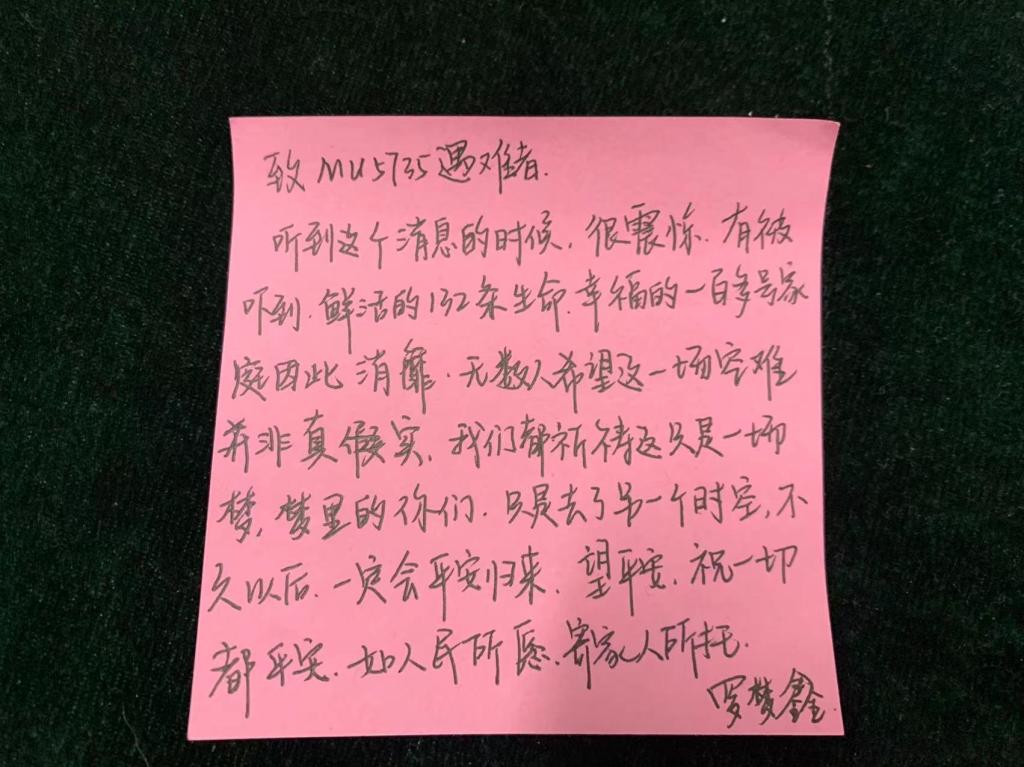 致MU5735遇难者.
听到这个消息的时候,很震惊.有被
吓到.鲜活的132条生命.幸福的一百多号家
庭因此消靡.无数人希望这一场空难
并非真假实,我们都祈祷这只是一场
梦,梦里的你们.只是去了另一个时空,不
久以后.一定会平安归来.望平安.祝一切
都平安.如人民所愿.寄家人所托.
罗梦鑫